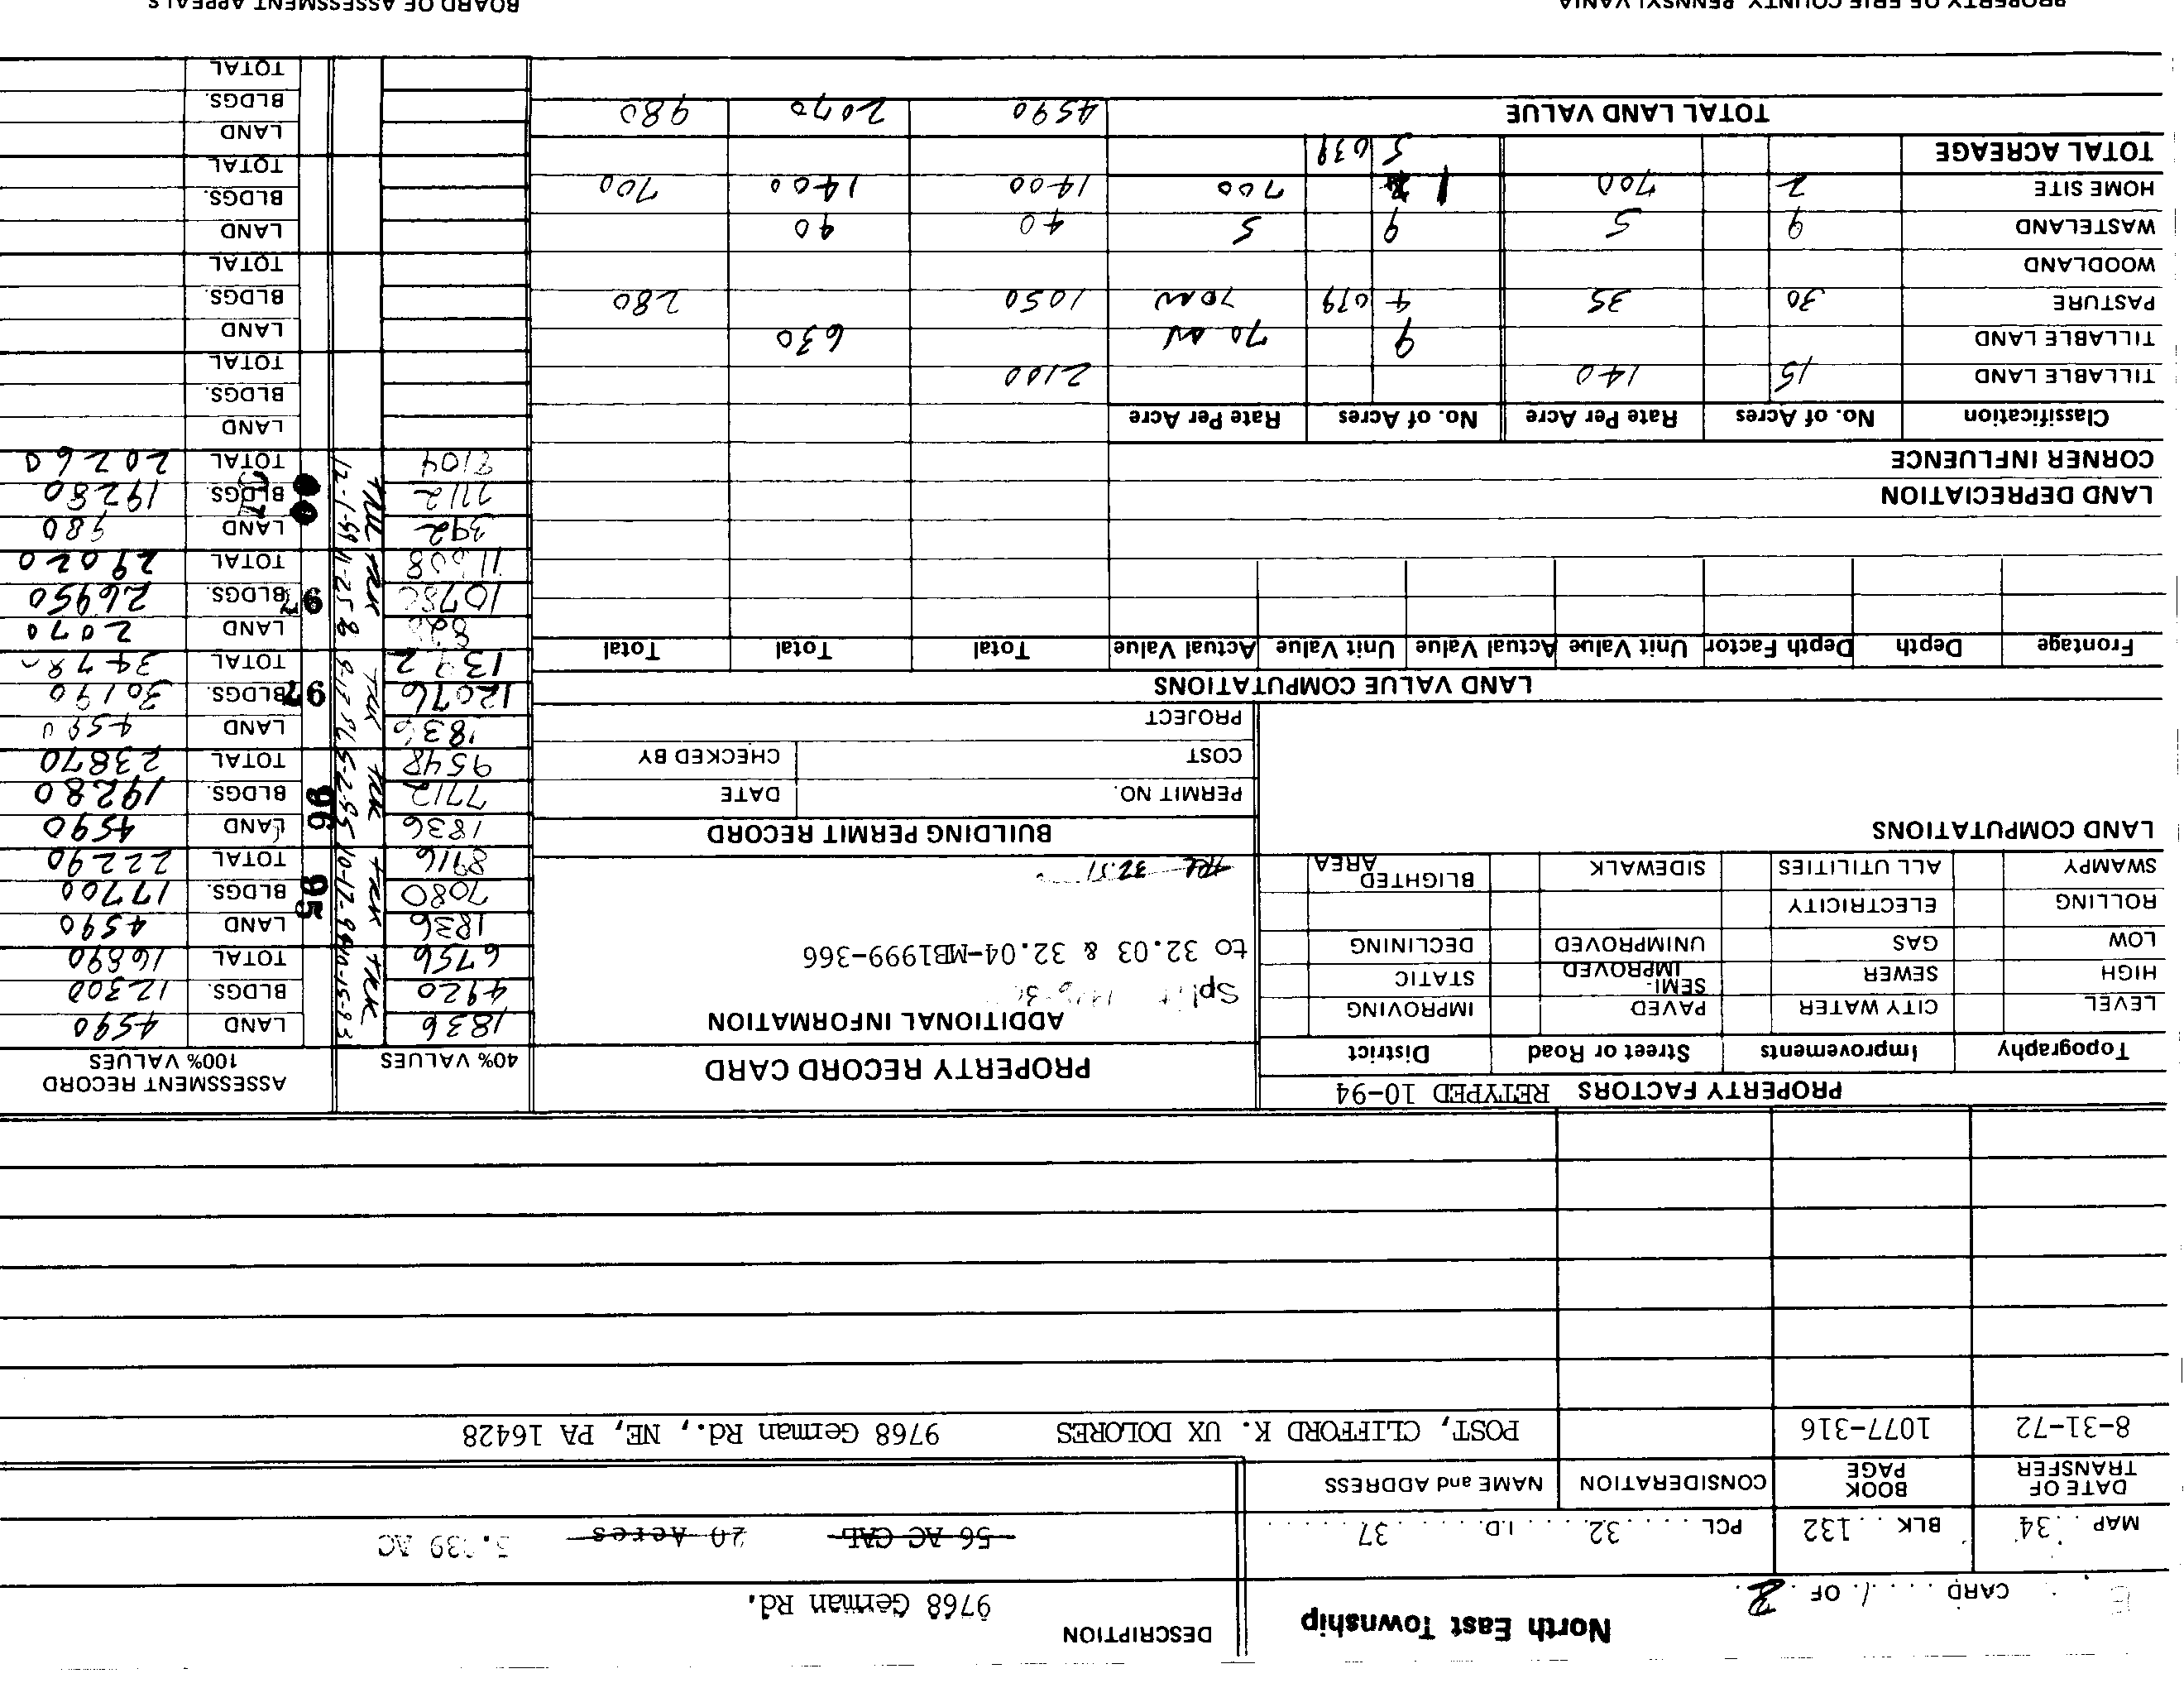 CARD . . . 1 . OF . 2 .
North East Township
DESCRIPTION
9768 German Rd.
MAP . . 34 BLK . . 132 PCL . . . . . 32 . . . . . I.D. . . . . . 37 . . . . . .
56 AC CAL 20 Acres 5.039 AC
DATE OF TRANSFER BOOK PAGE CONSIDERATION NAME and ADDRESS
8-31-72 1077-316 POST, CLIFFORD K. UX DOLORES 9768 German Rd., NE, PA 16428
PROPERTY FACTORS RETYPED 10-94
Topography Improvements Street or Road District
LEVEL CITY WATER PAVED IMPROVING
HIGH SEWER SEMI-IMPROVED STATIC
LOW GAS UNIMPROVED DECLINING
ROLLING ELECTRICITY
SWAMPY ALL UTILITIES SIDEWALK BLIGHTED AREA
LAND COMPUTATIONS
PROPERTY RECORD CARD
ADDITIONAL INFORMATION
Split
to 32.03 & 32.04-MB1999-366
32.37
BUILDING PERMIT RECORD
PERMIT NO. DATE
COST CHECKED BY
PROJECT
40% VALUES ASSESSMENT RECORD 100% VALUES
1836 TRK 10-15-93 LAND 4590
4920 BLDGS. 12300
6756 TOTAL 16890
1836 TRK 10-17-94 95 LAND 4590
7080 BLDGS. 17700
8916 TOTAL 22290
1836 TRK 5-2-95 96 LAND 4590
7712 BLDGS. 19280
9548 TOTAL 23870
1836 TRK LAND 4590
12076 97 BLDGS. 30190
TOTAL 34780
828 TRK 11-25-8 LAND 2070
10780 BLDGS. 26950
11608 TOTAL 29020
392 12-1-99 LAND 980
7712 BLDGS. 19280
8104 TOTAL 20260
LAND
BLDGS.
TOTAL
LAND
BLDGS.
TOTAL
LAND
BLDGS.
TOTAL
LAND
BLDGS.
TOTAL
LAND VALUE COMPUTATIONS
Frontage Depth Depth Factor Unit Value Actual Value Unit Value Actual Value Total Total Total
LAND DEPRECIATION
CORNER INFLUENCE
Classification No. of Acres Rate Per Acre No. of Acres Rate Per Acre
TILLABLE LAND 15 140 2100
TILLABLE LAND 9 70 AV 630
PASTURE 30 35 4 039 70 AV 1050 280
WOODLAND
WASTELAND 9 5 9 5 40 40
HOME SITE 2 700 1 700 1400 1400 700
TOTAL ACREAGE 5 039
TOTAL LAND VALUE 4590 2070 980
PROPERTY OF ERIE COUNTY, PENNSYLVANIA BOARD OF ASSESSMENT APPEALS